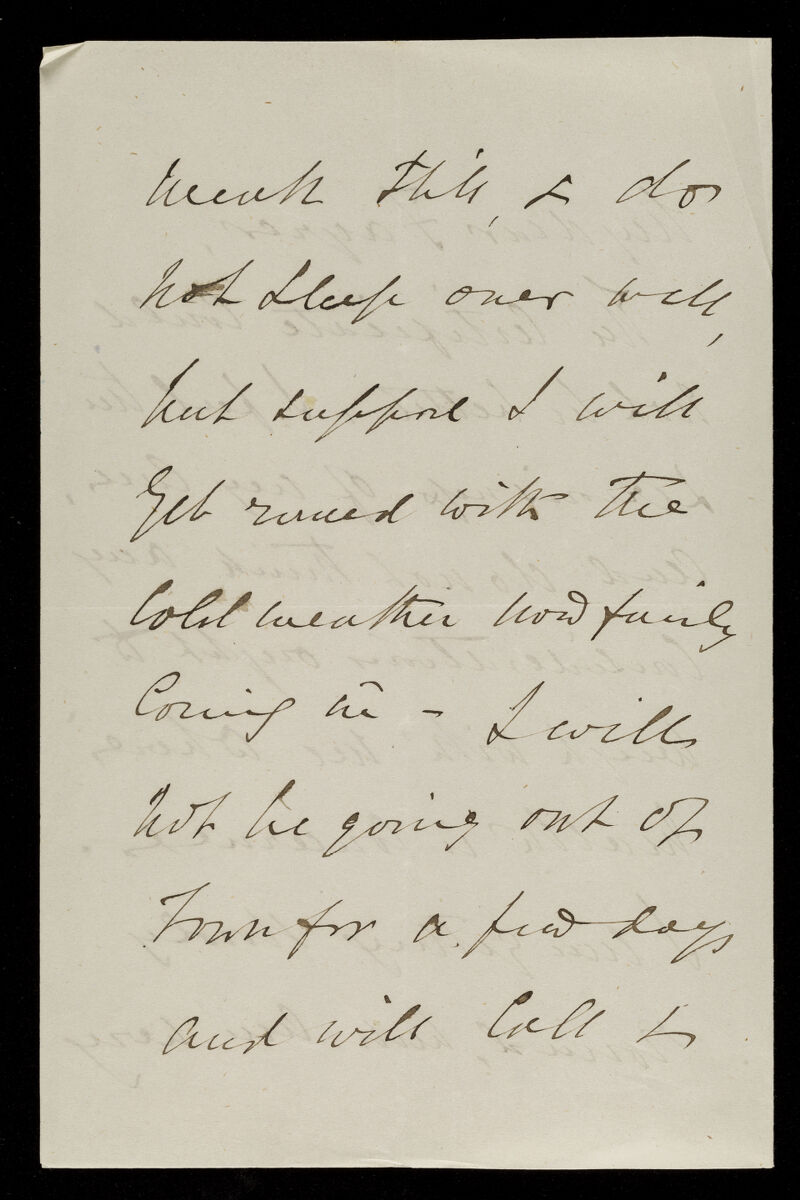 weak still, & do
not sleep over well,
but suppose I will
get round with the
Cold weather now fairly
Coming in - I will
not be going out of
Town for a few days
and will Call &